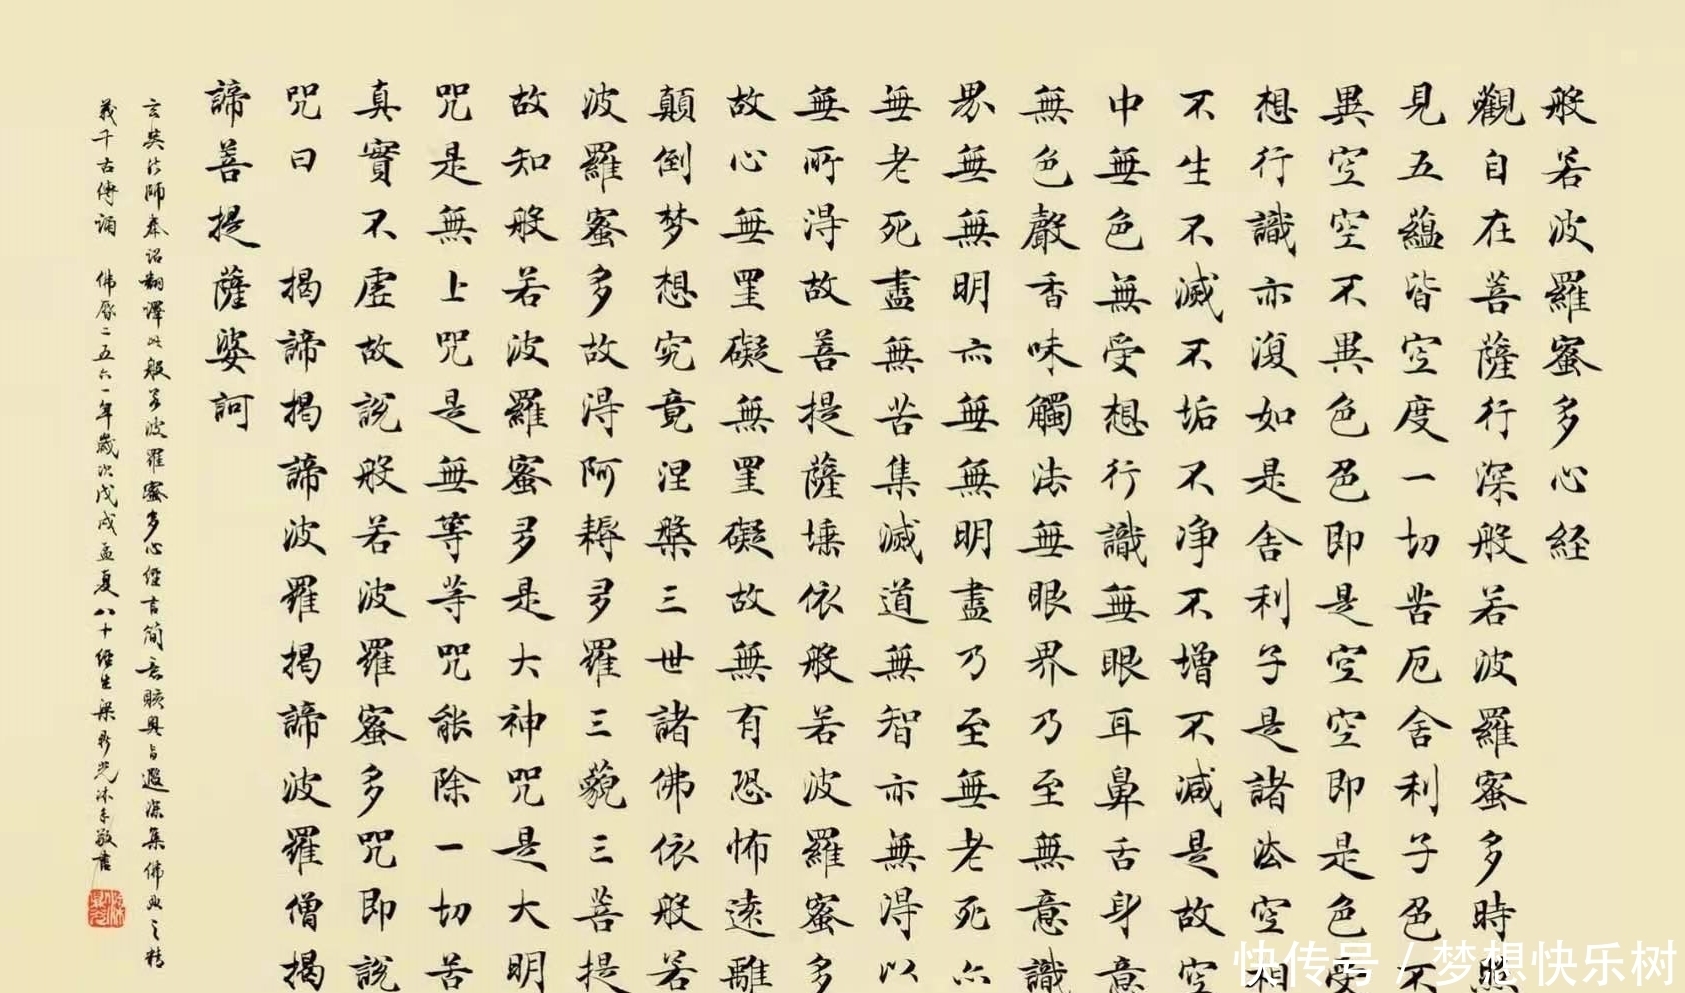 般若波羅蜜多心経
觀自在菩薩行深般若波羅蜜多時照
見五蘊皆空度一切苦厄舍利子色不
異空空不異色色即是空空即是色受
想行識亦復如是舍利子是諸法空相
不生不滅不垢不净不增不減是故空
中無色無受想行識無眼耳鼻舌身意
無色聲香味觸法無眼界乃至無意識
界無無明亦無無明盡乃至無老死亦
無老死盡無苦集滅道無智亦無得以
無所得故菩提薩埵依般若波羅蜜多
故心無罣礙無罣礙故無有恐怖遠離
顛倒梦想究竟涅槃三世諸佛依般若
波羅蜜多故得阿耨多羅三藐三菩提
故知般若波羅蜜多是大神咒是大明
咒是無上咒是無等等咒能除一切苦
真實不虛故說般若波羅蜜多咒即說
咒曰 揭諦揭諦波羅揭諦波羅僧揭
諦菩提薩婆訶
玄奘法師奉詔翻譯此般若波羅蜜多心經言簡意賅奥旨遐深集佛典之精
義千古傳誦 佛曆二五六一年歲次戊戌孟夏八十經生梁光沐手敬書
快传号 / 梦想快乐树